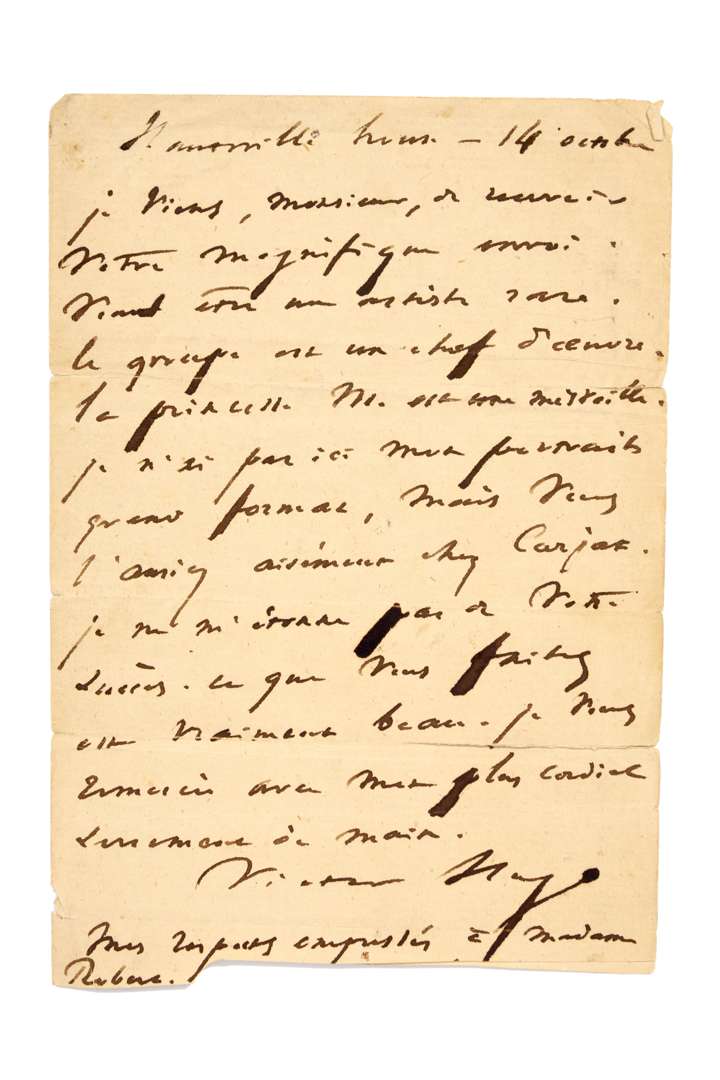 Hauteville house – 14 octobre
je viens, monsieur, de recevoir
votre magnifique envoi.
Vous êtes un artiste rare.
le groupe est un chef d'œuvre.
la princesse M. est une merveille.
je n'ai pas ici mon portrait
grand format, mais vous
l'aurez aisément chez Carjat.
je ne m'étonne pas de votre
succès. ce que vous faites
est vraiment beau. je vous
remercie avec mon plus cordial
serrement de main.
Victor Hugo
mes respects empressés à madame
Robert.